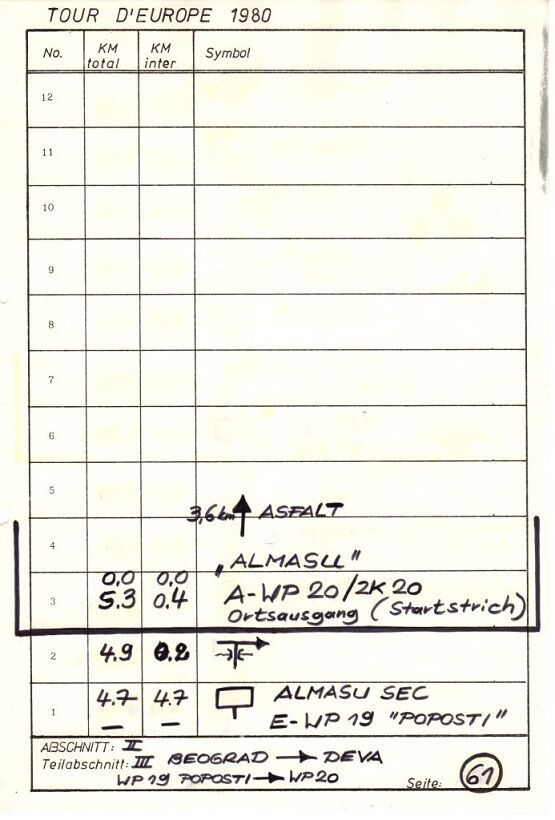 TOUR D'EUROPE 1980
No. KM total KM inter Symbol
12
11
10
9
8
7
6
5
3,6 km ASFALT
4
"ALMASU"
0,0 0,0
3 5.3 0.4 A-WP 20/ZK 20
Ortsausgang (Startstrich)
2 4.9 0.2
1 4.7 4.7 ALMASU SEC
— — E-WP 19 "POPOSTI"
ABSCHNITT: II
Teilabschnitt: III BEOGRAD → DEVA
WP 19 POPOSTI → WP 20
Seite: 61